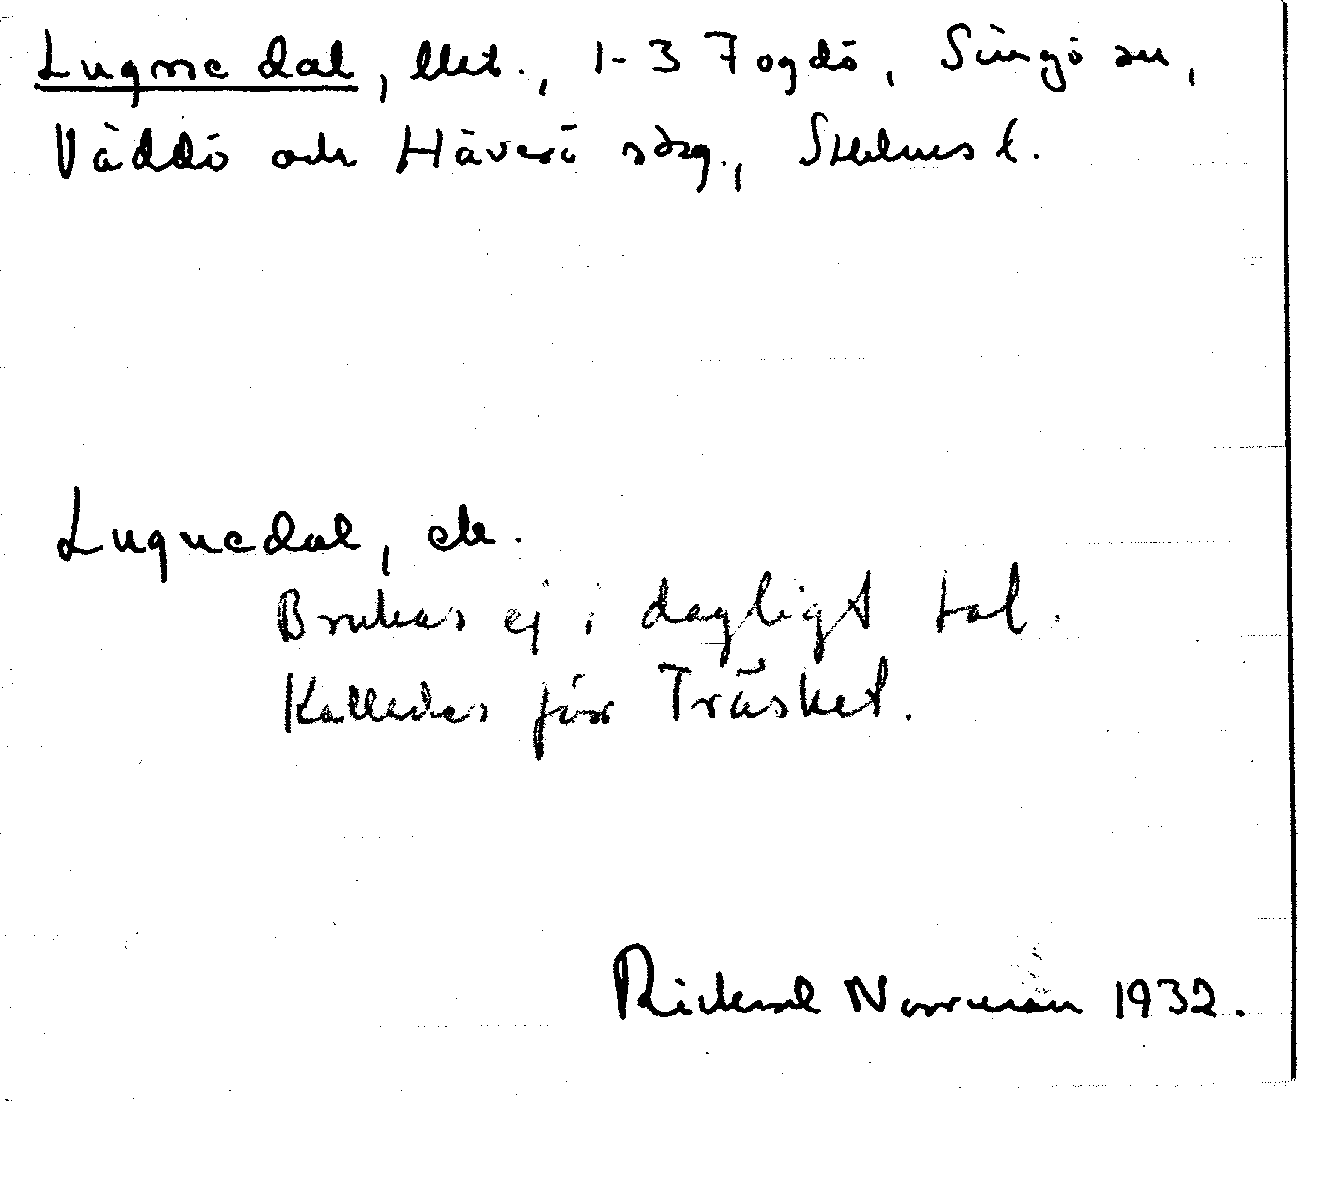 Lugnedal, lht., 1-3 Fogdö, Singö sn,
Väddö och Häverö skg., Sthlms l.
Lugnedal, ställe.
Brukas ej i dagligt tal.
Kallades förr Träsket.
Rickard Norrman 1932.